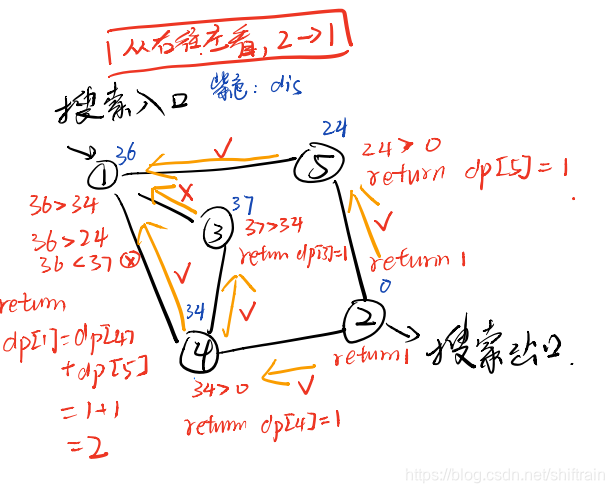 从右往左看，2→1
搜索入口
紫色：dis
36
①
24
⑤
24>0
return dp[5]=1
.
36>34
36>24
36<37 ⓧ
37
③
37>34
return dp[3]=1
return 1
0
②
return
dp[1]=dp[4]
+dp[5]
=1+1
=2
34
④
34>0
return dp[4]=1
return 1
搜索出口.
https://blog.csdn.net/shiftrain